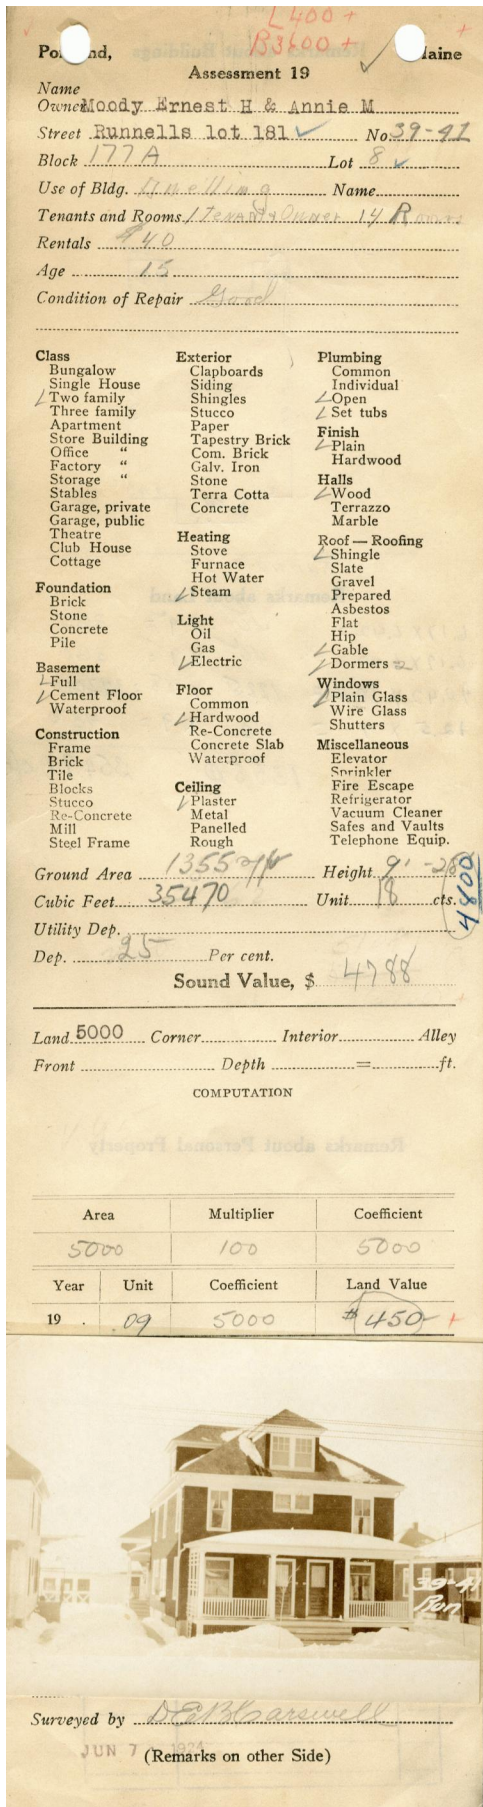 L 400 +
B 3600 +
Portland, Maine
Assessment 19
Name
Owner Moody Ernest H & Annie M
Street Runnells lot 181 ✓ No. 39-41
Block 177A Lot 8 ✓
Use of Bldg. Dwelling Name
Tenants and Rooms 1 Tenant & Owner 14 Rooms
Rentals $40
Age 15
Condition of Repair Good
Class
Bungalow
Single House
✓ Two family
Three family
Apartment
Store Building
Office "
Factory "
Storage "
Stables
Garage, private
Garage, public
Theatre
Club House
Cottage
Foundation
Brick
Stone
Concrete
Pile
Basement
✓ Full
✓ Cement Floor
Waterproof
Construction
Frame
Brick
Tile
Blocks
Stucco
Re-Concrete
Mill
Steel Frame
Exterior
Clapboards
Siding
Shingles
Stucco
Paper
Tapestry Brick
Com. Brick
Galv. Iron
Stone
Terra Cotta
Concrete
Heating
Stove
Furnace
Hot Water
✓ Steam
Light
Oil
Gas
✓ Electric
Floor
Common
✓ Hardwood
Re-Concrete
Concrete Slab
Waterproof
Ceiling
✓ Plaster
Metal
Panelled
Rough
Plumbing
Common
Individual
✓ Open
✓ Set tubs
Finish
✓ Plain
Hardwood
Halls
✓ Wood
Terrazzo
Marble
Roof — Roofing
✓ Shingle
Slate
Gravel
Prepared
Asbestos
Flat
Hip
✓ Gable
✓ Dormers 2
Windows
✓ Plain Glass
Wire Glass
Shutters
Miscellaneous
Elevator
Sprinkler
Fire Escape
Refrigerator
Vacuum Cleaner
Safes and Vaults
Telephone Equip.
Ground Area 1355 Height 9'-28
Cubic Feet 35470 Unit 18 cts.
4800
Utility Dep.
Dep. 25 Per cent.
Sound Value, $ 4788
Land 5000 Corner Interior Alley
Front Depth = ft.
COMPUTATION
Area Multiplier Coefficient
5000 100 5000
Year Unit Coefficient Land Value
19 . .09 5000 $450 +
39-41
Run
Surveyed by D E B Carswell
JUN 7 1924
(Remarks on other Side)